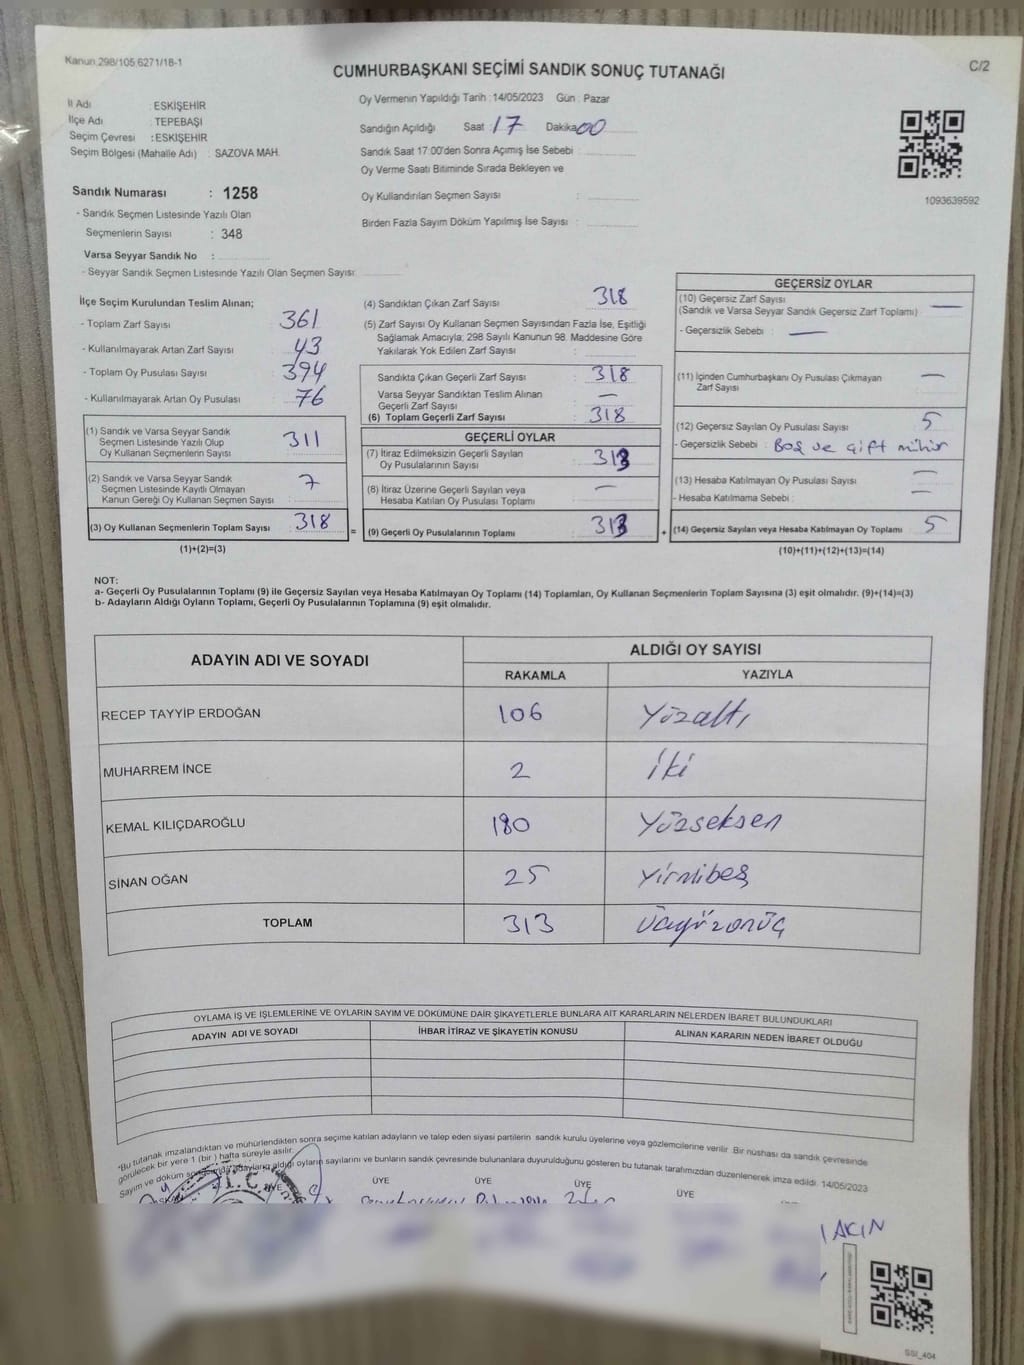 Kanun.298/105,6271/18-1
CUMHURBAŞKANI SEÇİMİ SANDIK SONUÇ TUTANAĞI
C/2
İl Adı : ESKİŞEHİR
İlçe Adı : TEPEBAŞI
Seçim Çevresi : ESKİŞEHİR
Seçim Bölgesi (Mahalle Adı) : SAZOVA MAH.
Oy Vermenin Yapıldığı Tarih :14/05/2023 Gün : Pazar
Sandığın Açıldığı Saat : 17 Dakika 00
Sandık Saat 17:00'den Sonra Açımış İse Sebebi :
Oy Verme Saati Bitiminde Sırada Bekleyen ve
Oy Kullandırılan Seçmen Sayısı :
Birden Fazla Sayım Döküm Yapılmış İse Sayısı :
1093639592
Sandık Numarası : 1258
- Sandık Seçmen Listesinde Yazılı Olan
Seçmenlerin Sayısı : 348
Varsa Seyyar Sandık No :
- Seyyar Sandık Seçmen Listesinde Yazılı Olan Seçmen Sayısı:
İlçe Seçim Kurulundan Teslim Alınan;
- Toplam Zarf Sayısı : 361
- Kullanılmayarak Artan Zarf Sayısı : 43
- Toplam Oy Pusulası Sayısı : 394
- Kullanılmayarak Artan Oy Pusulası : 76
(1) Sandık ve Varsa Seyyar Sandık
Seçmen Listesinde Yazılı Olup
Oy Kullanan Seçmenlerin Sayısı : 311
(2) Sandık ve Varsa Seyyar Sandık
Seçmen Listesinde Kayıtlı Olmayan
Kanun Gereği Oy Kullanan Seçmen Sayısı : 7
(3) Oy Kullanan Seçmenlerin Toplam Sayısı : 318
(1)+(2)=(3)
(4) Sandıktan Çıkan Zarf Sayısı : 318
(5) Zarf Sayısı Oy Kullanan Seçmen Sayısından Fazla İse, Eşitliği
Sağlamak Amacıyla; 298 Sayılı Kanunun 98. Maddesine Göre
Yakılarak Yok Edilen Zarf Sayısı :
Sandıkta Çıkan Geçerli Zarf Sayısı : 318
Varsa Seyyar Sandıktan Teslim Alınan
Geçerli Zarf Sayısı : —
(6) Toplam Geçerli Zarf Sayısı : 318
GEÇERLİ OYLAR
(7) İtiraz Edilmeksizin Geçerli Sayılan
Oy Pusulalarının Sayısı : 313
(8) İtiraz Üzerine Geçerli Sayılan veya
Hesaba Katılan Oy Pusulası Toplamı : —
= (9) Geçerli Oy Pusulalarının Toplamı : 313
GEÇERSİZ OYLAR
(10) Geçersiz Zarf Sayısı : —
(Sandık ve Varsa Seyyar Sandık Geçersiz Zarf Toplamı)
- Geçersizlik Sebebi : —
(11) İçinden Cumhurbaşkanı Oy Pusulası Çıkmayan
Zarf Sayısı : —
(12) Geçersiz Sayılan Oy Pusulası Sayısı : 5
- Geçersizlik Sebebi : Boş ve çift mühür
(13) Hesaba Katılmayan Oy Pusulası Sayısı : —
- Hesaba Katılmama Sebebi : —
+ (14) Geçersiz Sayılan veya Hesaba Katılmayan Oy Toplamı : 5
(10)+(11)+(12)+(13)=(14)
NOT:
a- Geçerli Oy Pusulalarının Toplamı (9) ile Geçersiz Sayılan veya Hesaba Katılmayan Oy Toplamı (14) Toplamları, Oy Kullanan Seçmenlerin Toplam Sayısına (3) eşit olmalıdır. (9)+(14)=(3)
b- Adayların Aldığı Oyların Toplamı, Geçerli Oy Pusulalarının Toplamına (9) eşit olmalıdır.
ADAYIN ADI VE SOYADI ALDIĞI OY SAYISI
RAKAMLA YAZIYLA
RECEP TAYYİP ERDOĞAN 106 Yüzaltı
MUHARREM İNCE 2 iki
KEMAL KILIÇDAROĞLU 180 Yüzseksen
SİNAN OĞAN 25 Yirmibeş
TOPLAM 313 Üçyüzonüç
OYLAMA İŞ VE İŞLEMLERİNE VE OYLARIN SAYIM VE DÖKÜMÜNE DAİR ŞİKAYETLERLE BUNLARA AİT KARARLARIN NELERDEN İBARET BULUNDUKLARI
ADAYIN ADI VE SOYADI İHBAR İTİRAZ VE ŞİKAYETİN KONUSU ALINAN KARARIN NEDEN İBARET OLDUĞU
*Bu tutanak imzalandıktan ve mühürlendikten sonra seçime katılan adayların ve talep eden siyasi partilerin sandık kurulu üyelerine veya gözlemcilerine verilir .Bir nüshası da sandık çevresinde
görülecek bir yere 1 (bir ) hafta süreyle asılır.
Sayım ve döküm adayların aldığı oyların sayılarını ve bunların sandık çevresinde bulunanlara duyurulduğunu gösteren bu tutanak tarafımızdan düzenlenerek imza edildi. 14/05/2023
ÜYE ÜYE ÜYE ÜYE ÜYE
T.C.
AKIN
SSI_404